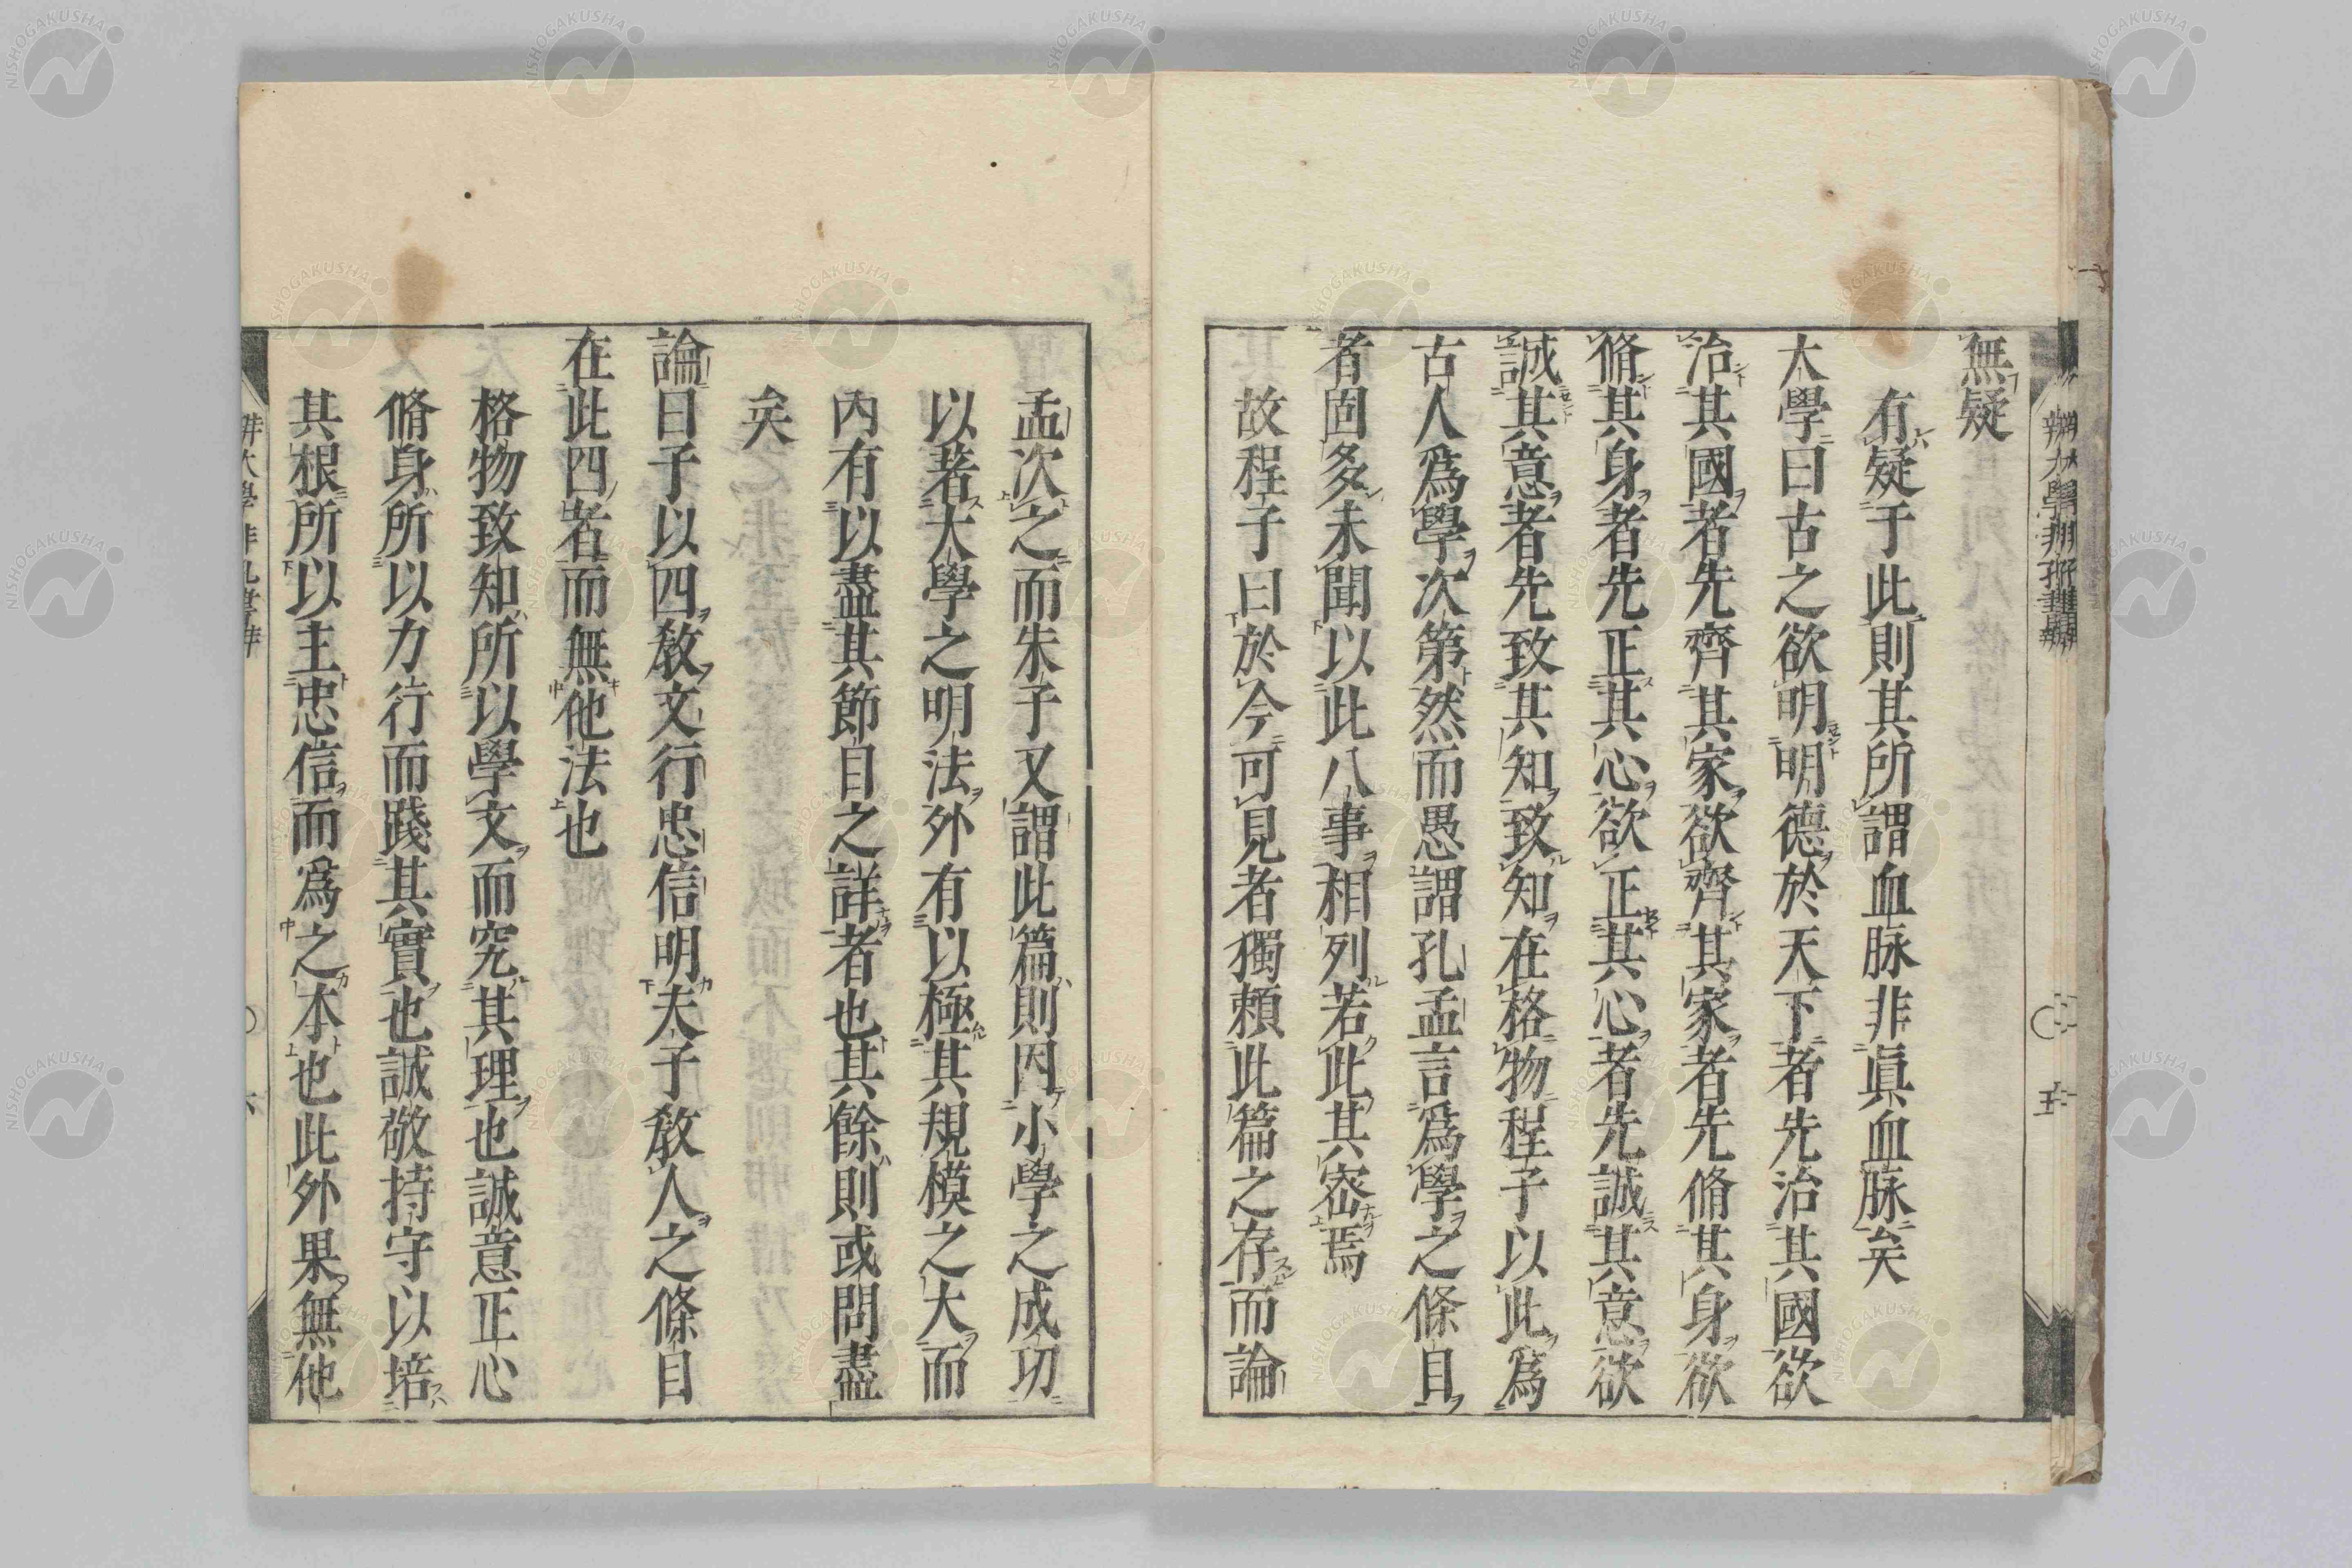 無疑
有疑于此則其所謂血脉非眞血脉矣
大學曰古之欲明明德於天下者先治其國欲
治其國者先齊其家欲齊其家者先脩其身欲
脩其身者先正其心欲正其心者先誠其意欲
誠其意者先致其知致知在格物程子以此爲
古人爲學次第然而愚謂孔孟言爲學之條目
者固多未聞以此八事相列若此其密焉
故程子曰於今可見者獨頼此篇之存而論
孟次之而朱子又謂此篇則因小學之成功
以著大學之明法外有以極其規模之大而
内有以盡其節目之詳者也其餘則或問盡
矣
論曰子以四敎文行忠信明夫子敎人之條目
在此四者而無他法也
格物致知所以學文而究其理也誠意正心
脩身所以力行而踐其實也誠敬持守以培
其根所以主忠信而爲之本也此外果無他
NISHOGAKUSHA